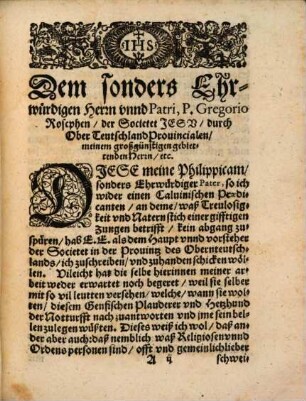 IHS
Dem sonders Ehr-
würdigen Herrn vnnd Patri, P. Gregorio
Rosephen / der Societet JESV / durch
Ober Teutschland Prouincialen /
meinem großgünstigen gebiet-
tenden Herrn / etc.
DIESE meine Philippicam /
sonders Ehrwürdiger Pater, so ich
wider einen Caluinischen Predi-
canten / an deme / was Treulosig-
keit vnd Natern stich einer gifftigen
Zungen betrifft / kein abgang zu
spüren / hab E. E. als dem Haupt vnnd vorsteher
der Societet in der Prouintz des Obernteutsch-
lands / ich zuschreiben / vnd zuhanden schicken wöl-
len. Vileicht hat die selbe hierinnen meiner ar-
beit weder erwartet noch begeret / weil sie selber
mit so vil leutten versehen / welche / wann sie wol-
ten / disem Genfischen Plauderer vnd Hetzhund
der Notturfft nach zuantworten vnd jme sein bel-
len zulegen wüsten. Dieses weiß ich wol / daß an-
der aber auch: daß nemblich was Religiosen vnnd
Ordens personen sind / offt vnd gemeinlich lieber
A ij
schwei-